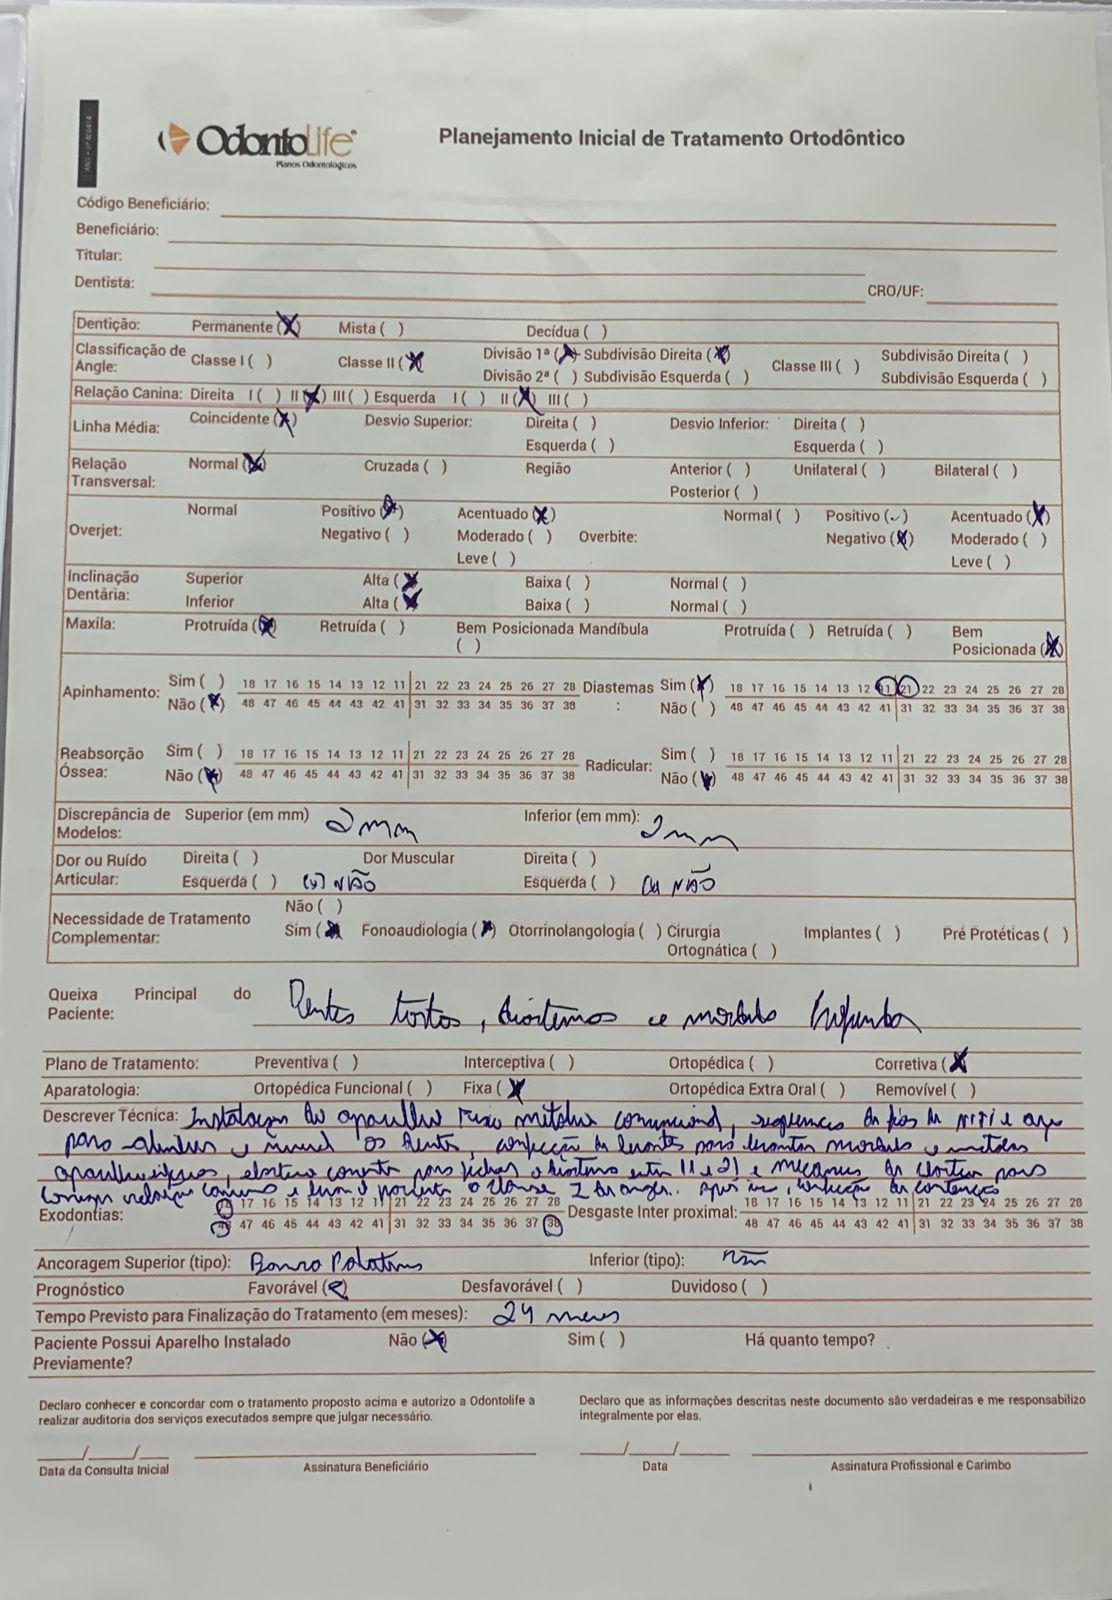 OdontoLife
Planos Odontológicos
Planejamento Inicial de Tratamento Ortodôntico
Código Beneficiário:
Beneficiário:
Titular:
Dentista: CRO/UF:
Dentição: Permanente (X) Mista ( ) Decídua ( )
Classificação de Angle: Classe I ( ) Classe II (X) Divisão 1ª (X) Subdivisão Direita (X) Classe III ( ) Subdivisão Direita ( )
Divisão 2ª ( ) Subdivisão Esquerda ( ) Subdivisão Esquerda ( )
Relação Canina: Direita I ( ) II (X) III ( ) Esquerda I ( ) II (X) III ( )
Linha Média: Coincidente (X) Desvio Superior: Direita ( ) Desvio Inferior: Direita ( )
Esquerda ( ) Esquerda ( )
Relação Transversal: Normal (X) Cruzada ( ) Região Anterior ( ) Unilateral ( ) Bilateral ( )
Posterior ( )
Overjet: Normal Positivo (X) Acentuado (X) Overbite: Normal ( ) Positivo ( ) Acentuado (X)
Negativo ( ) Moderado ( ) Negativo (X) Moderado ( )
Leve ( ) Leve ( )
Inclinação Dentária: Superior Alta (X) Baixa ( ) Normal ( )
Inferior Alta (X) Baixa ( ) Normal ( )
Maxila: Protruída (X) Retruída ( ) Bem Posicionada ( ) Mandíbula Protruída ( ) Retruída ( ) Bem Posicionada (X)
Apinhamento: Sim ( ) 18 17 16 15 14 13 12 11 21 22 23 24 25 26 27 28 Diastemas : Sim (X) 18 17 16 15 14 13 12 11 21 22 23 24 25 26 27 28
Não (X) 48 47 46 45 44 43 42 41 31 32 33 34 35 36 37 38 Não ( ) 48 47 46 45 44 43 42 41 31 32 33 34 35 36 37 38
Reabsorção Óssea: Sim ( ) 18 17 16 15 14 13 12 11 21 22 23 24 25 26 27 28 Radicular: Sim ( ) 18 17 16 15 14 13 12 11 21 22 23 24 25 26 27 28
Não (X) 48 47 46 45 44 43 42 41 31 32 33 34 35 36 37 38 Não (X) 48 47 46 45 44 43 42 41 31 32 33 34 35 36 37 38
Discrepância de Modelos: Superior (em mm) 2mm Inferior (em mm): 2mm
Dor ou Ruído Articular: Direita ( ) Dor Muscular Direita ( )
Esquerda ( ) (X) NÃO Esquerda ( ) NÃO
Necessidade de Tratamento Complementar: Não ( )
Sim (X) Fonoaudiologia (X) Otorrinolangologia ( ) Cirurgia Ortognática ( ) Implantes ( ) Pré Protéticas ( )
Queixa Principal do Paciente: Dentes tortos, diastemas e mordida profunda
Plano de Tratamento: Preventiva ( ) Interceptiva ( ) Ortopédica ( ) Corretiva (X)
Aparatologia: Ortopédica Funcional ( ) Fixa (X) Ortopédica Extra Oral ( ) Removível ( )
Descrever Técnica: Instalação do aparelho fixo metálico convencional, sequencia de fios de niti e aço
para alinhar e nivelar os dentes, confecção de levantes para levantar mordida
aparelho elastico corrente para fechar o diastema entre 11 e 21 e mecanica de elastico para
corrigir relação canina classe I de angle. Após isso, confecção da contenção
Exodontias: 18 17 16 15 14 13 12 11 21 22 23 24 25 26 27 28 Desgaste Inter proximal: 18 17 16 15 14 13 12 11 21 22 23 24 25 26 27 28
48 47 46 45 44 43 42 41 31 32 33 34 35 36 37 38 48 47 46 45 44 43 42 41 31 32 33 34 35 36 37 38
Ancoragem Superior (tipo): Barra Palatina Inferior (tipo): não
Prognóstico Favorável (X) Desfavorável ( ) Duvidoso ( )
Tempo Previsto para Finalização do Tratamento (em meses): 24 meses
Paciente Possui Aparelho Instalado Previamente? Não (X) Sim ( ) Há quanto tempo?
Declaro conhecer e concordar com o tratamento proposto acima e autorizo a Odontolife a
realizar auditoria dos serviços executados sempre que julgar necessário.
Declaro que as informações descritas neste documento são verdadeiras e me responsabilizo
integralmente por elas.
Data da Consulta Inicial Assinatura Beneficiário Data Assinatura Profissional e Carimbo